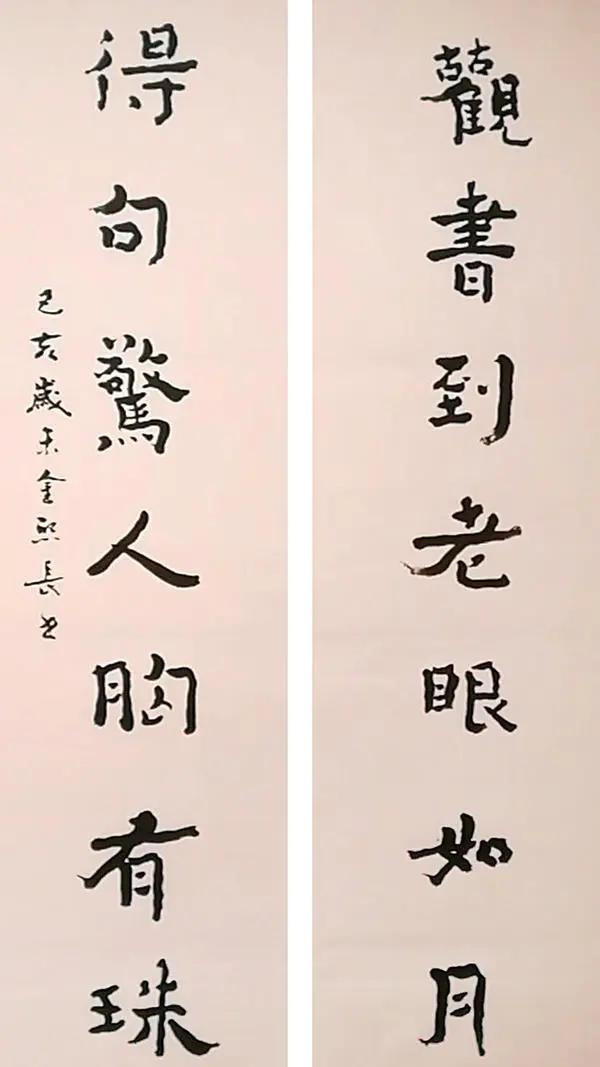 觀書到老眼如月
得句驚人胸有珠
己亥歲末金熙長书